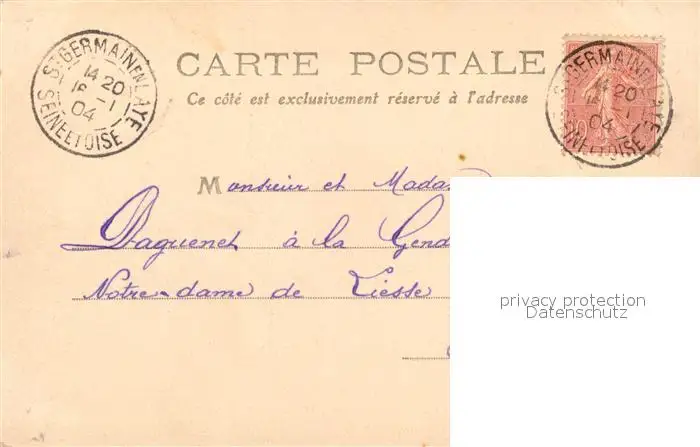 St GERMAIN EN LAYE
14 20
16 -1
04
SEINE ET OISE
CARTE POSTALE
Ce côté est exclusivement réservé à l'adresse
St GERMAIN EN LAYE
20
-1
04
SEINE ET OISE
10
Monsieur et Mada
Daguenet à la Gend
Notre-dame de Liesse
privacy protection
Datenschutz